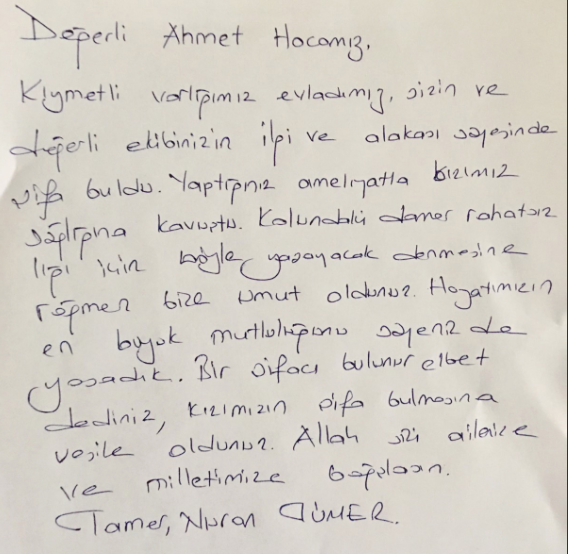 Değerli Ahmet Hocamız,
Kıymetli varlığımız evladımız, sizin ve
değerli ekibinizin ilgi ve alakası sayesinde
şifa buldu. Yaptığınız ameliyatla kızımız
sağlığına kavuştu. Kolundaki damar rahatsız
lığı için böyle yaşayacak denmesine
rağmen bize umut oldunuz. Hayatımızın
en büyük mutluluğunu sayenizde
yaşadık. Bir şifacı bulunur elbet
dediniz, kızımızın şifa bulmasına
vesile oldunuz. Allah sizi ailenize
ve milletimize bağışlasın.
Tamer, Nuran TÜMER.